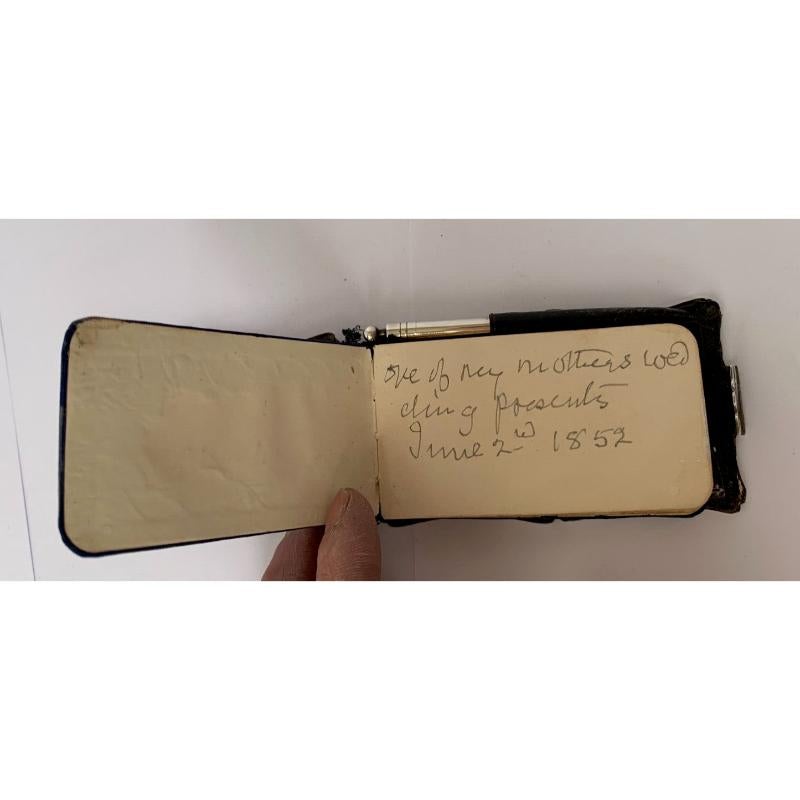 one of my mothers wed
ding presents
June 2nd 1852